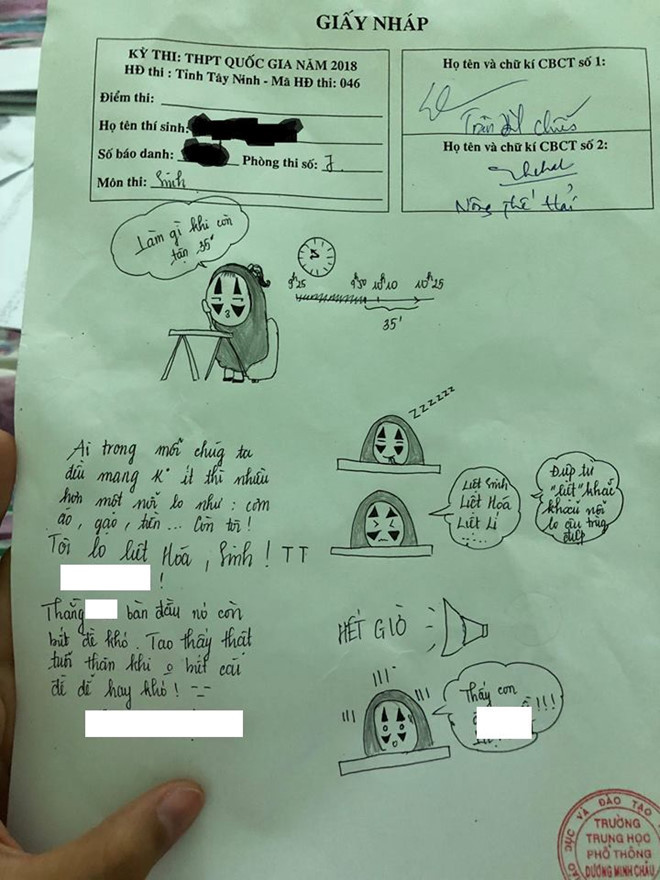 GIẤY NHÁP
KỲ THI: THPT QUỐC GIA NĂM 2018
HĐ thi : Tỉnh Tây Ninh - Mã HĐ thi: 046
Điểm thi:
Họ tên thí sinh:
Số báo danh:
Phòng thi số: 7
Môn thi: Sinh
Họ tên và chữ kí CBCT số 1:
Trần
Họ tên và chữ kí CBCT số 2:
Nông Thế Hải
Làm gì khi còn
tận 35'
9h25
9h50
10h10
10h25
35'
zzzzzz
Ai trong mỗi chúng ta
đều mang k° ít thì nhiều
hơn một nỗi lo như : cơm
áo, gạo, tiền ... Còn tôi!
Tôi lo liệt Hóa, Sinh! TT
!
Liệt Sinh
Liệt Hóa
Liệt Lí
.....
Đúp tư
"liệt" khắc
khoải nỗi
lo câu trùng
điệp
Thằng
bàn đầu nó còn
biết đề khó. Tao thấy thật
tủi thân khi o biết cái
đề dễ hay khó! -_-
HẾT GIỜ
Thầy con
!!!
DỤC VÀ ĐÀO TẠO
TRƯỜNG
TRUNG HỌC
PHỔ THÔNG
DƯƠNG MINH CHÂU